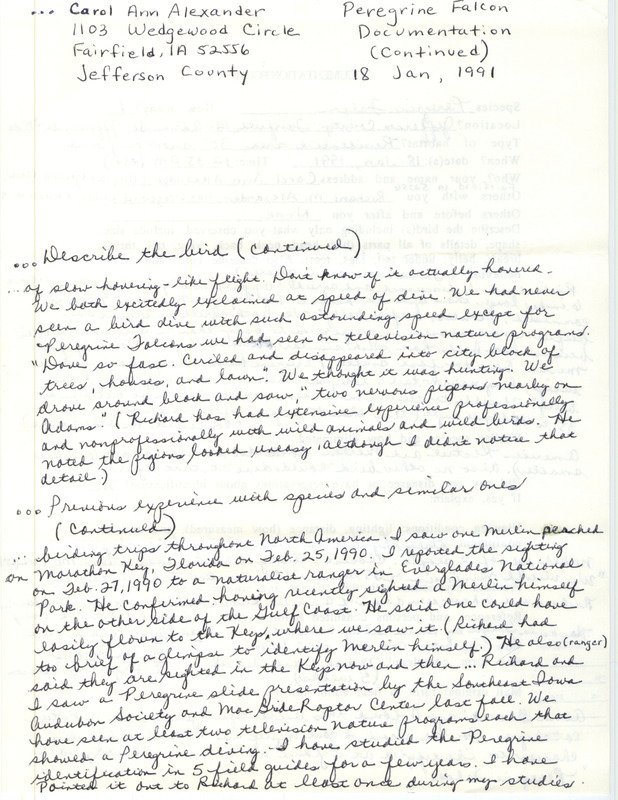 ... Carol Ann Alexander Peregrine Falcon
1103 Wedgewood Circle Documentation
Fairfield, IA 52556 (Continued)
Jefferson County 18 Jan, 1991
... Describe the bird (Continued)
... of slow hovering-like flight. Don't know if it actually hovered.
We both excitedly exclaimed at speed of dive. We had never
seen a bird dive with such astounding speed except for
Peregrine Falcons we had seen on television nature programs.
"Dove so fast. Circled and disappeared into city block of
trees, houses, and lawn." We thought it was hunting. We
drove around block and saw, "two nervous pigeons nearby on
Adams." (Richard has had extensive experience professionally
and nonprofessionally with wild animals and wild birds. He
noted the pigions looked uneasy, although I didn't notice that
detail.)
... Previous experience with species and similar ones
(Continued)
... birding trips throughout North America. I saw one Merlin perched
on Marathon Key, Florida on Feb. 25, 1990. I reported the sighting
on Feb. 27, 1990 to a naturalist ranger in Everglades National
Park. He confirmed having recently sighted a Merlin himself
on the other side of the Gulf Coast. He said one could have
easily flown to the Keys, where we saw it. (Richard had
too brief of a glimpse to identify Merlin himself.) He also (ranger)
said they are sighted in the Keys now and then ... Richard and
I saw a Peregrine slide presentation by the Southeast Iowa
Audubon Society and MacBride Raptor Center last fall. We
have seen at least two television nature programs each that
showed a Peregrine diving. I have studied the Peregrine
identification in 5 field guides for a few years. I have
Pointed it out to Richard at least once during my studies.